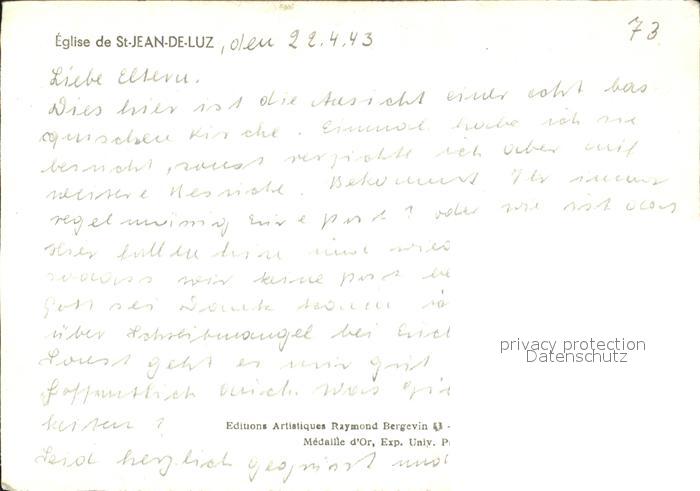 Église de St-JEAN-DE-LUZ, den 22.4.43
73
Liebe Eltern.
Dies hier ist die Ansicht einer echt bas-
quischen Kirche. Einmal habe ich sie
besucht, sonst verzichte ich aber auf
weitere Besuche. Bekommt Ihr immer
regelmässig Eure post? oder wie ist das
Hier
sodass wir keine post be
Gott sei Dank kann ic
über Schreibmangel bei Euch
Sonst geht es mir gut
Hoffentlich auch. Was
keiten?
Editions Artistiques Raymond Bergevin 43 -
Médaille d'Or, Exp. Univ. P
Seid herzlich gegrüsst und
privacy protection
Datenschutz